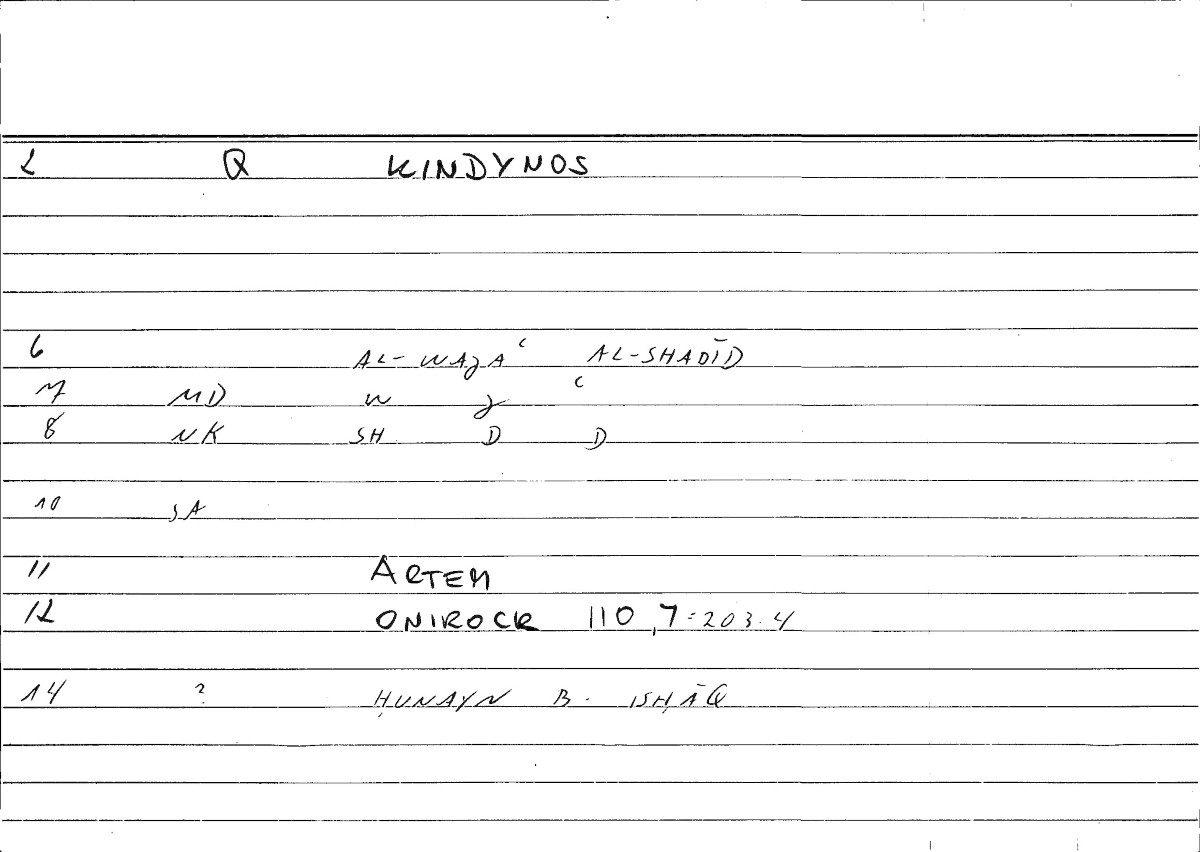 2 Q KINDYNOS
6 AL-WAJAʿ AL-SHADĪD
7 MD W J ʿ
8 NK SH D D
10 SA
11 ARTEM
12 ONIROCR 110,7=203.4
14 ? ḤUNAYN B. ISḤĀQ